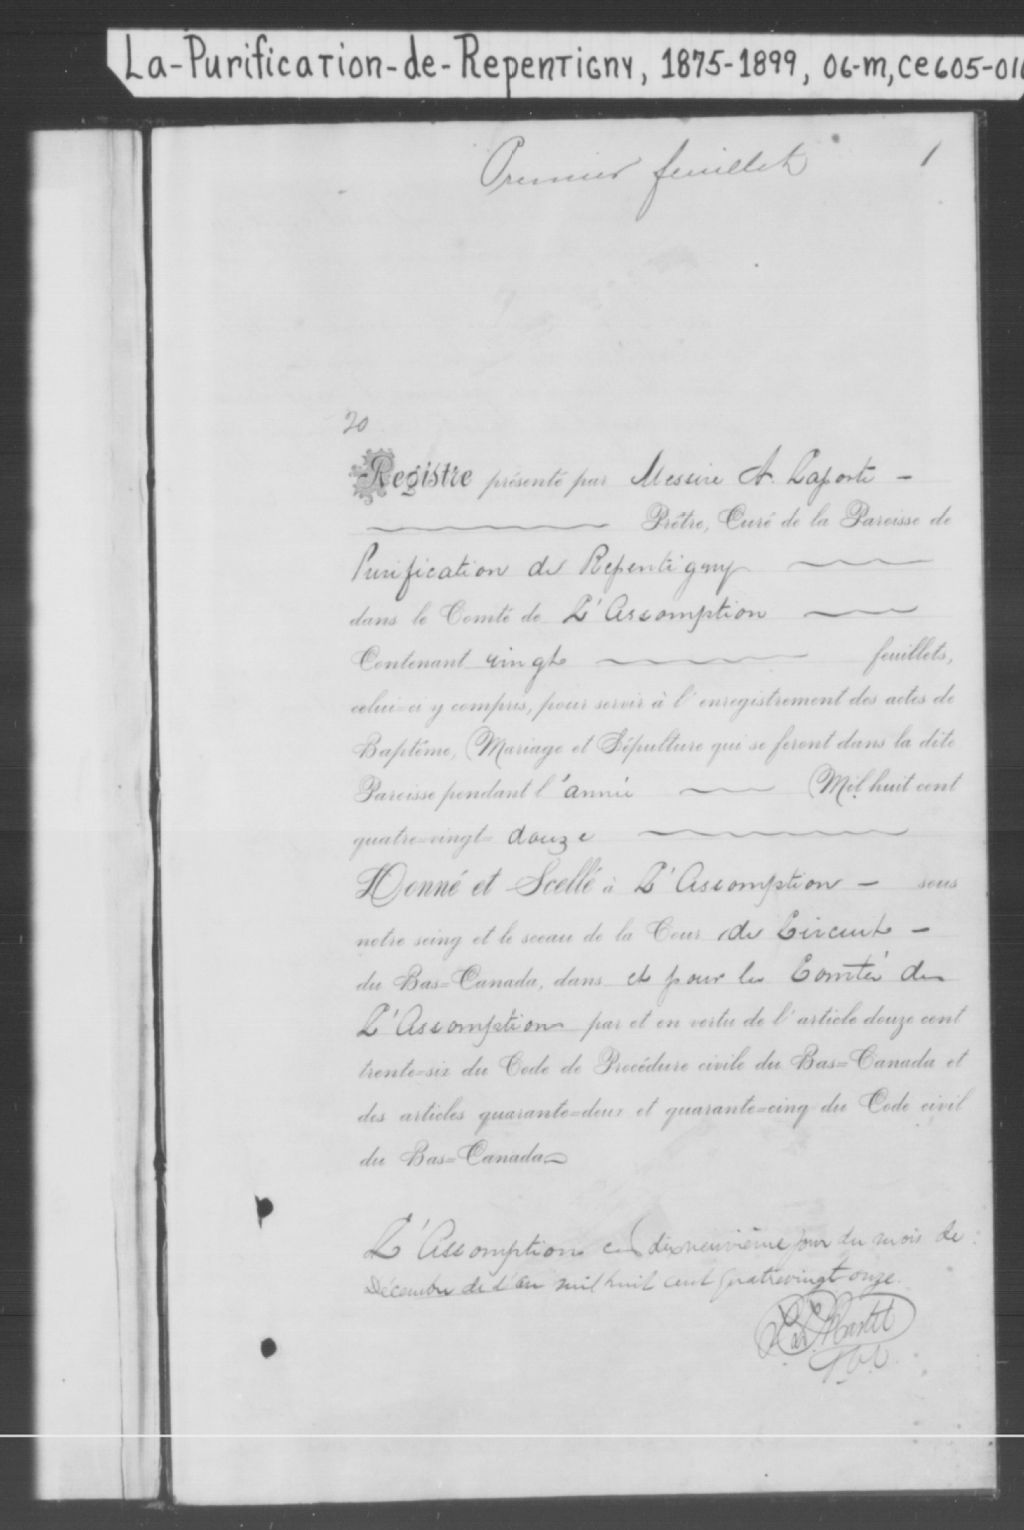 La-Purification-de-Repentigny, 1875-1899, 06-m, ce605-016
Premier feuillet 1
20
Registre présenté par Messire A. Laporte -
Prêtre, Curé de la Paroisse de
Purification de Repentigny
dans le Comté de L'Assomption
Contenant vingt feuillets,
celui-ci y compris, pour servir à l'enregistrement des actes de
Baptême, Mariage et Sépulture qui se feront dans la dite
Paroisse pendant l'année Mil huit cent
quatre-vingt-douze
Donné et Scellé à L'Assomption - sous
notre seing et le sceau de la Cour de Circuit -
du Bas-Canada, dans et pour le Comté de
L'Assomption par et en vertu de l'article douze cent
trente-six du Code de Procédure civile du Bas-Canada et
des articles quarante-deux et quarante-cinq du Code civil
du Bas-Canada
L'Assomption ce dixneuvième jour du mois de
Décembre de l'an mil huit cent quatrevingt onze.